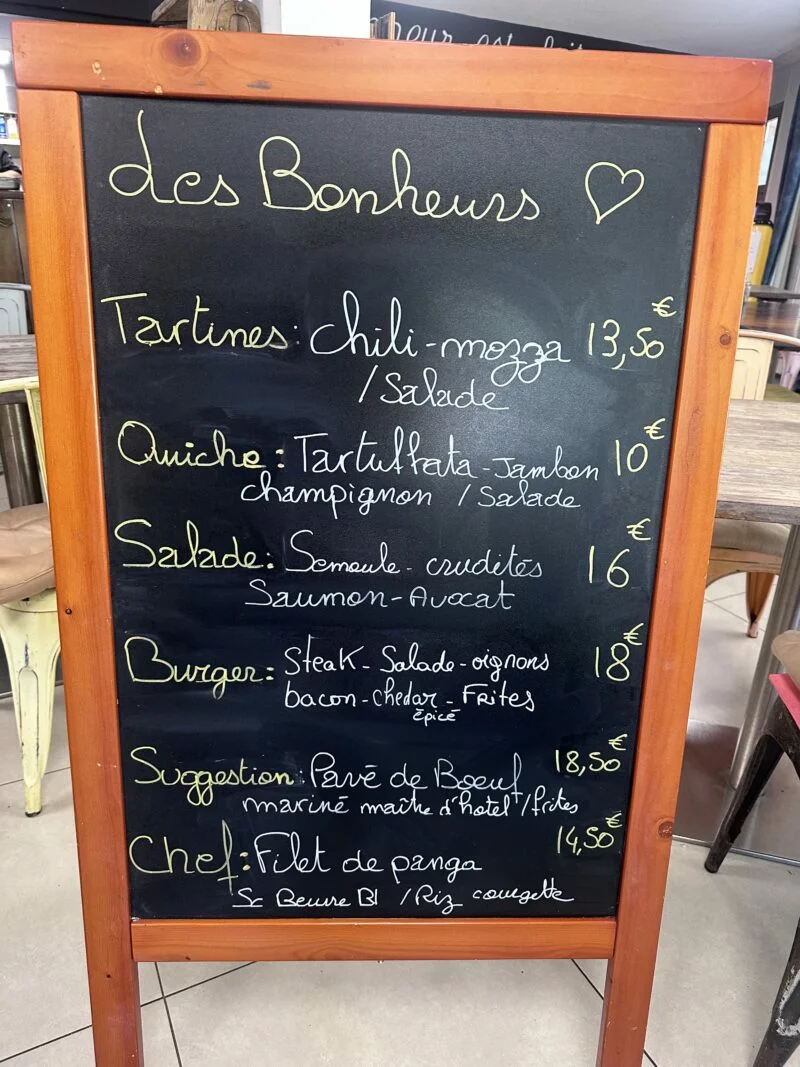 des Bonheurs
Tartines: chili-mozza 13,50€
/Salade
Quiche: Tartuffata-Jambon 10€
champignon /Salade
Salade: Semoule-crudités 16€
Saumon-Avocat
Burger: Steak-Salade-oignons 18€
bacon-chedar-Frites
épicé
Suggestion: Pavé de Boeuf 18,50€
mariné maître d'hotel/frites
Chef: Filet de panga 14,50€
Sc Beurre Bl /Riz courgette